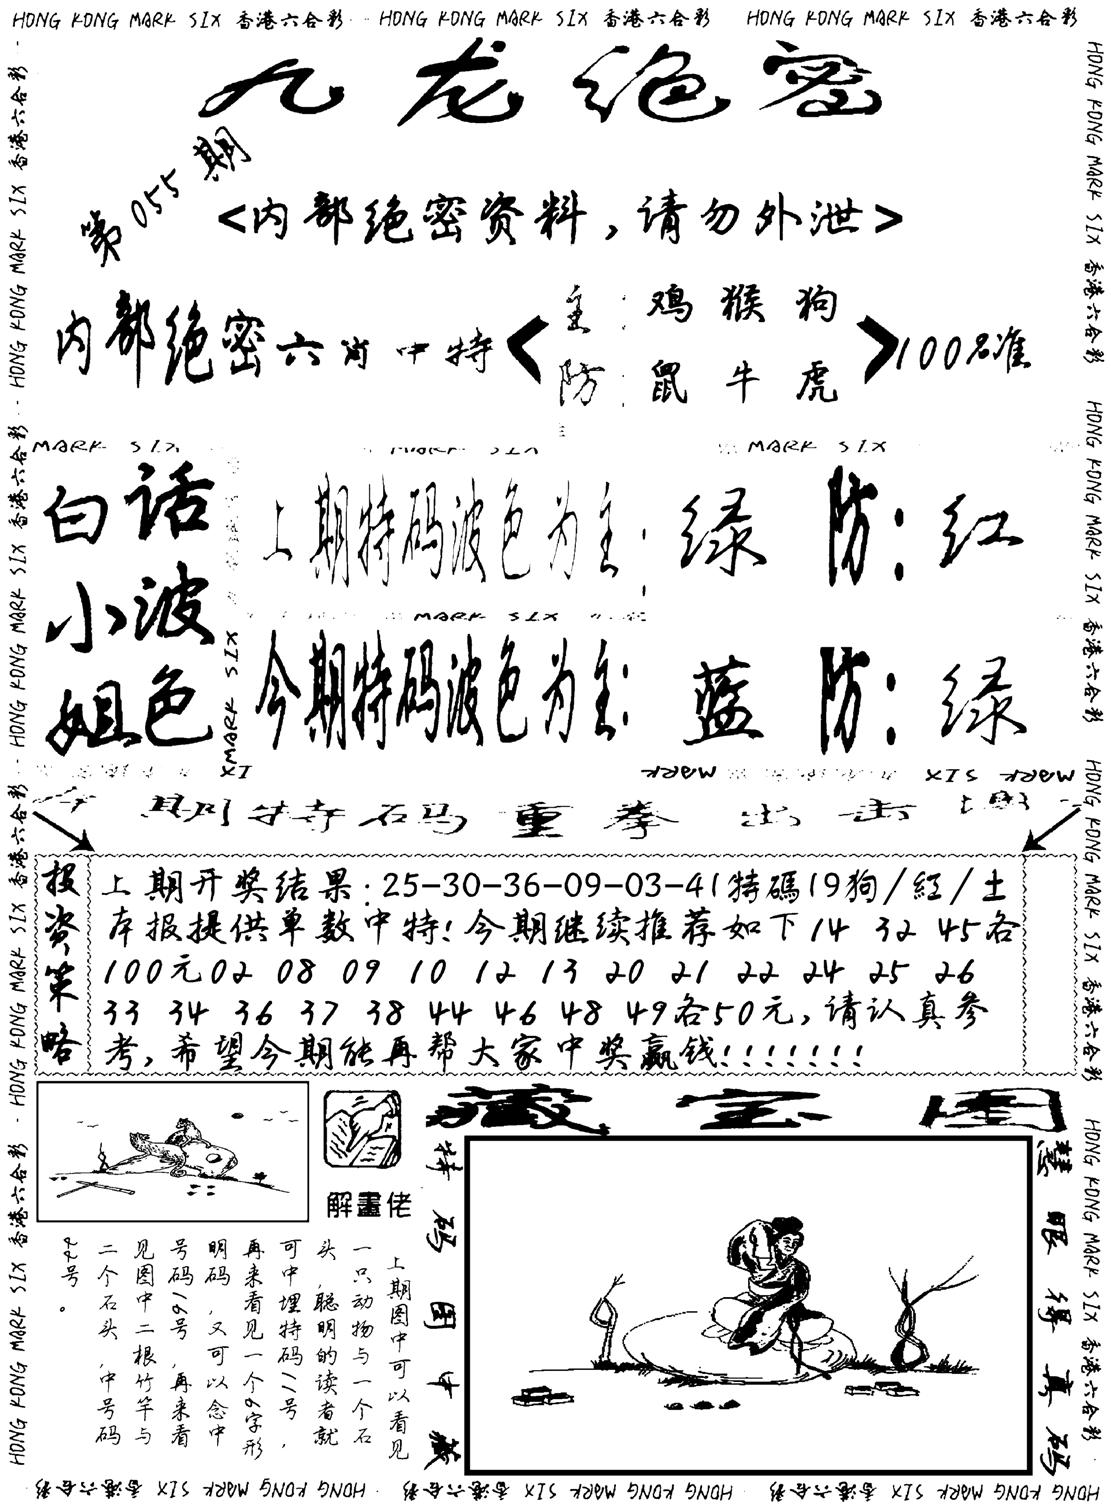 HONG KONG MARK SIX 香港六合彩 HONG KONG MARK SIX 香港六合彩 HONG KONG MARK SIX 香港六合彩
九龙绝密
第055期
<内部绝密资料，请勿外泄>
内部绝密六肖中特
主：鸡 猴 狗
防：鼠 牛 虎
100%准
MARK SIX MARK SIX MARK SIX
白小姐
话波色
上期特码波色为主：绿 防：红
MARK SIX
今期特码波色为主：蓝 防：绿
MARK SIX
今期特码重拳出击
投资策略
上期开奖结果：25-30-36-09-03-41特碼19狗/紅/土
本报提供单数中特！今期继续推荐如下14 32 45各
100元02 08 09 10 12 13 20 21 22 24 25 26
33 34 36 37 38 44 46 48 49各50元，请认真参
考，希望今期能再帮大家中奖赢钱！！！！！！！
解畫佬
上期图中可以看见
一只动物与一个石
头，聪明的读者就
可中埋特码11号，
再来看见一个9字形
明码，又可以念中
号码19号，再来看
见图中二根竹竿与
二个石头，中号码
22号。
藏宝图
特码图中藏
慧眼得真码
HONG KONG MARK SIX 香港六合彩 HONG KONG MARK SIX 香港六合彩 HONG KONG MARK SIX 香港六合彩